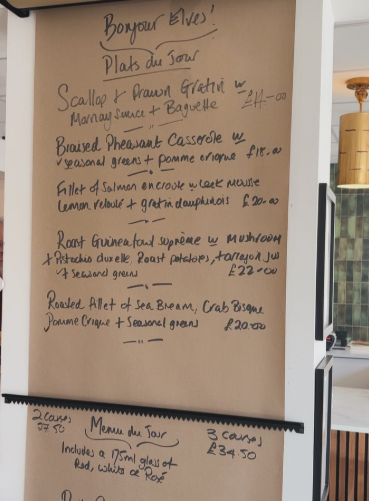 Bonjour Elves!
Plats du Jour
Scallop + Prawn Gratin w
Mornay sauce + Baguette £11-00
Braised Pheasant Casserole w
seasonal greens + pomme crique £18.00
Fillet of Salmon encroute w Leek mousse
Lemon velouté + gratin dauphinois £20.00
Roast Guineafowl supreme w Mushroom
+ Pistachio duxelle, Roast potatoes, tarragon jus
+ Seasonal greens £22-00
Roasted fillet of Sea Bream, Crab Bisque
Pomme Crique + Seasonal greens £20.00
2 courses Menu du Jour 3 courses
27.50 £34.50
Includes a 175ml glass of
Red, white or Rosé